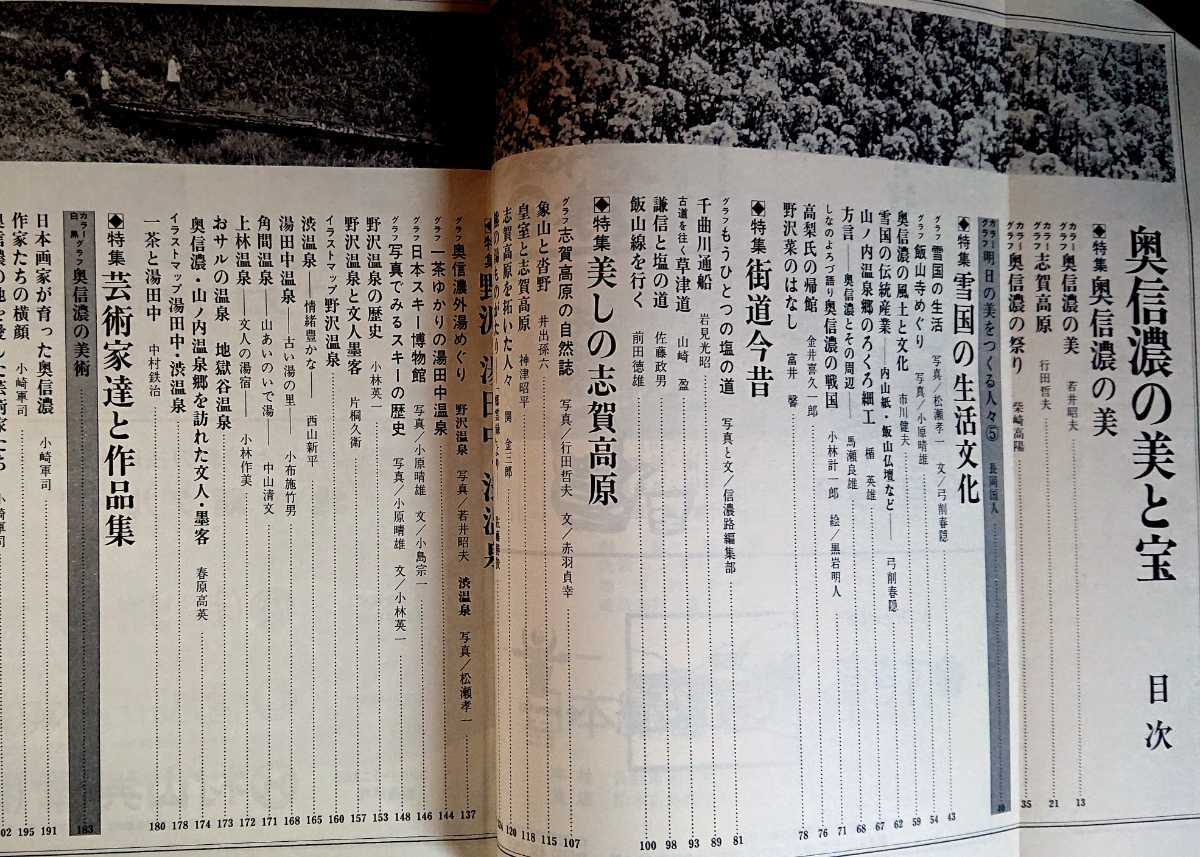 奥信濃の美と宝　目次
◆特集 奥信濃の美
カラーグラフ 奥信濃の美　若井昭夫 13
カラーグラフ 志賀高原　行田哲夫 21
カラーグラフ 奥信濃の祭り　柴崎高陽 35
カラーグラフ 明日の美をつくる人々⑤　長岡国人 40
◆特集 雪国の生活文化
グラフ 雪国の生活　写真／松瀬孝一　文／弓削春穏 43
グラフ 飯山寺めぐり　写真／小原晴雄 54
奥信濃の風土と文化　市川健夫 59
雪国の伝統産業――内山紙・飯山仏壇など――　弓削春穏 62
山ノ内温泉郷のろくろ細工　楯　英雄 67
方言――奥信濃とその周辺――　馬瀬良雄 68
しなのよろづ語り 奥信濃の戦国　小林計一郎　絵／黒岩明人 71
高梨氏の帰館　金井喜久一郎 76
野沢菜のはなし　富井　馨 78
◆特集 街道今昔
グラフ もうひとつの塩の道　写真と文／信濃路編集部 81
千曲川通船　岩見光昭 89
古道を往く 草津道　山崎　盈 93
謙信と塩の道　佐藤政男 98
飯山線を行く　前田徳雄 100
◆特集 美しの志賀高原
グラフ 志賀高原の自然誌　写真／行田哲夫　文／赤羽貞幸 107
象山と沓野　井出孫六 115
皇室と志賀高原　神津昭平 118
志賀高原を拓いた人々　関　金三郎 120
◆特集 野沢 湯田中 渋温泉
グラフ 奥信濃外湯めぐり　野沢温泉　写真／若井昭夫　渋温泉　写真／松瀬孝一 137
グラフ 一茶ゆかりの湯田中温泉 144
グラフ 日本スキー博物館　写真／小原晴雄　文／小島宗一 146
グラフ 写真でみるスキーの歴史　写真／小原晴雄　文／小林英一 148
野沢温泉の歴史　小林英一 153
野沢温泉と文人墨客　片桐久衛 157
イラストマップ 野沢温泉 160
渋温泉――情緒豊かな――　西山新平 165
湯田中温泉――古い湯の里――　小布施竹男 168
角間温泉――山あいのいで湯――　中山清文 171
上林温泉――文人の湯宿――　小林作美 172
おサルの温泉　地獄谷温泉 173
奥信濃・山ノ内温泉郷を訪れた文人・墨客　春原高英 174
イラストマップ 湯田中・渋温泉 178
一茶と湯田中　中村鉄治 180
◆特集 芸術家達と作品集
カラーグラフ 白黒 奥信濃の美術 183
日本画家が育った奥信濃　小崎軍司 191
作家たちの横顔　小崎軍司 195